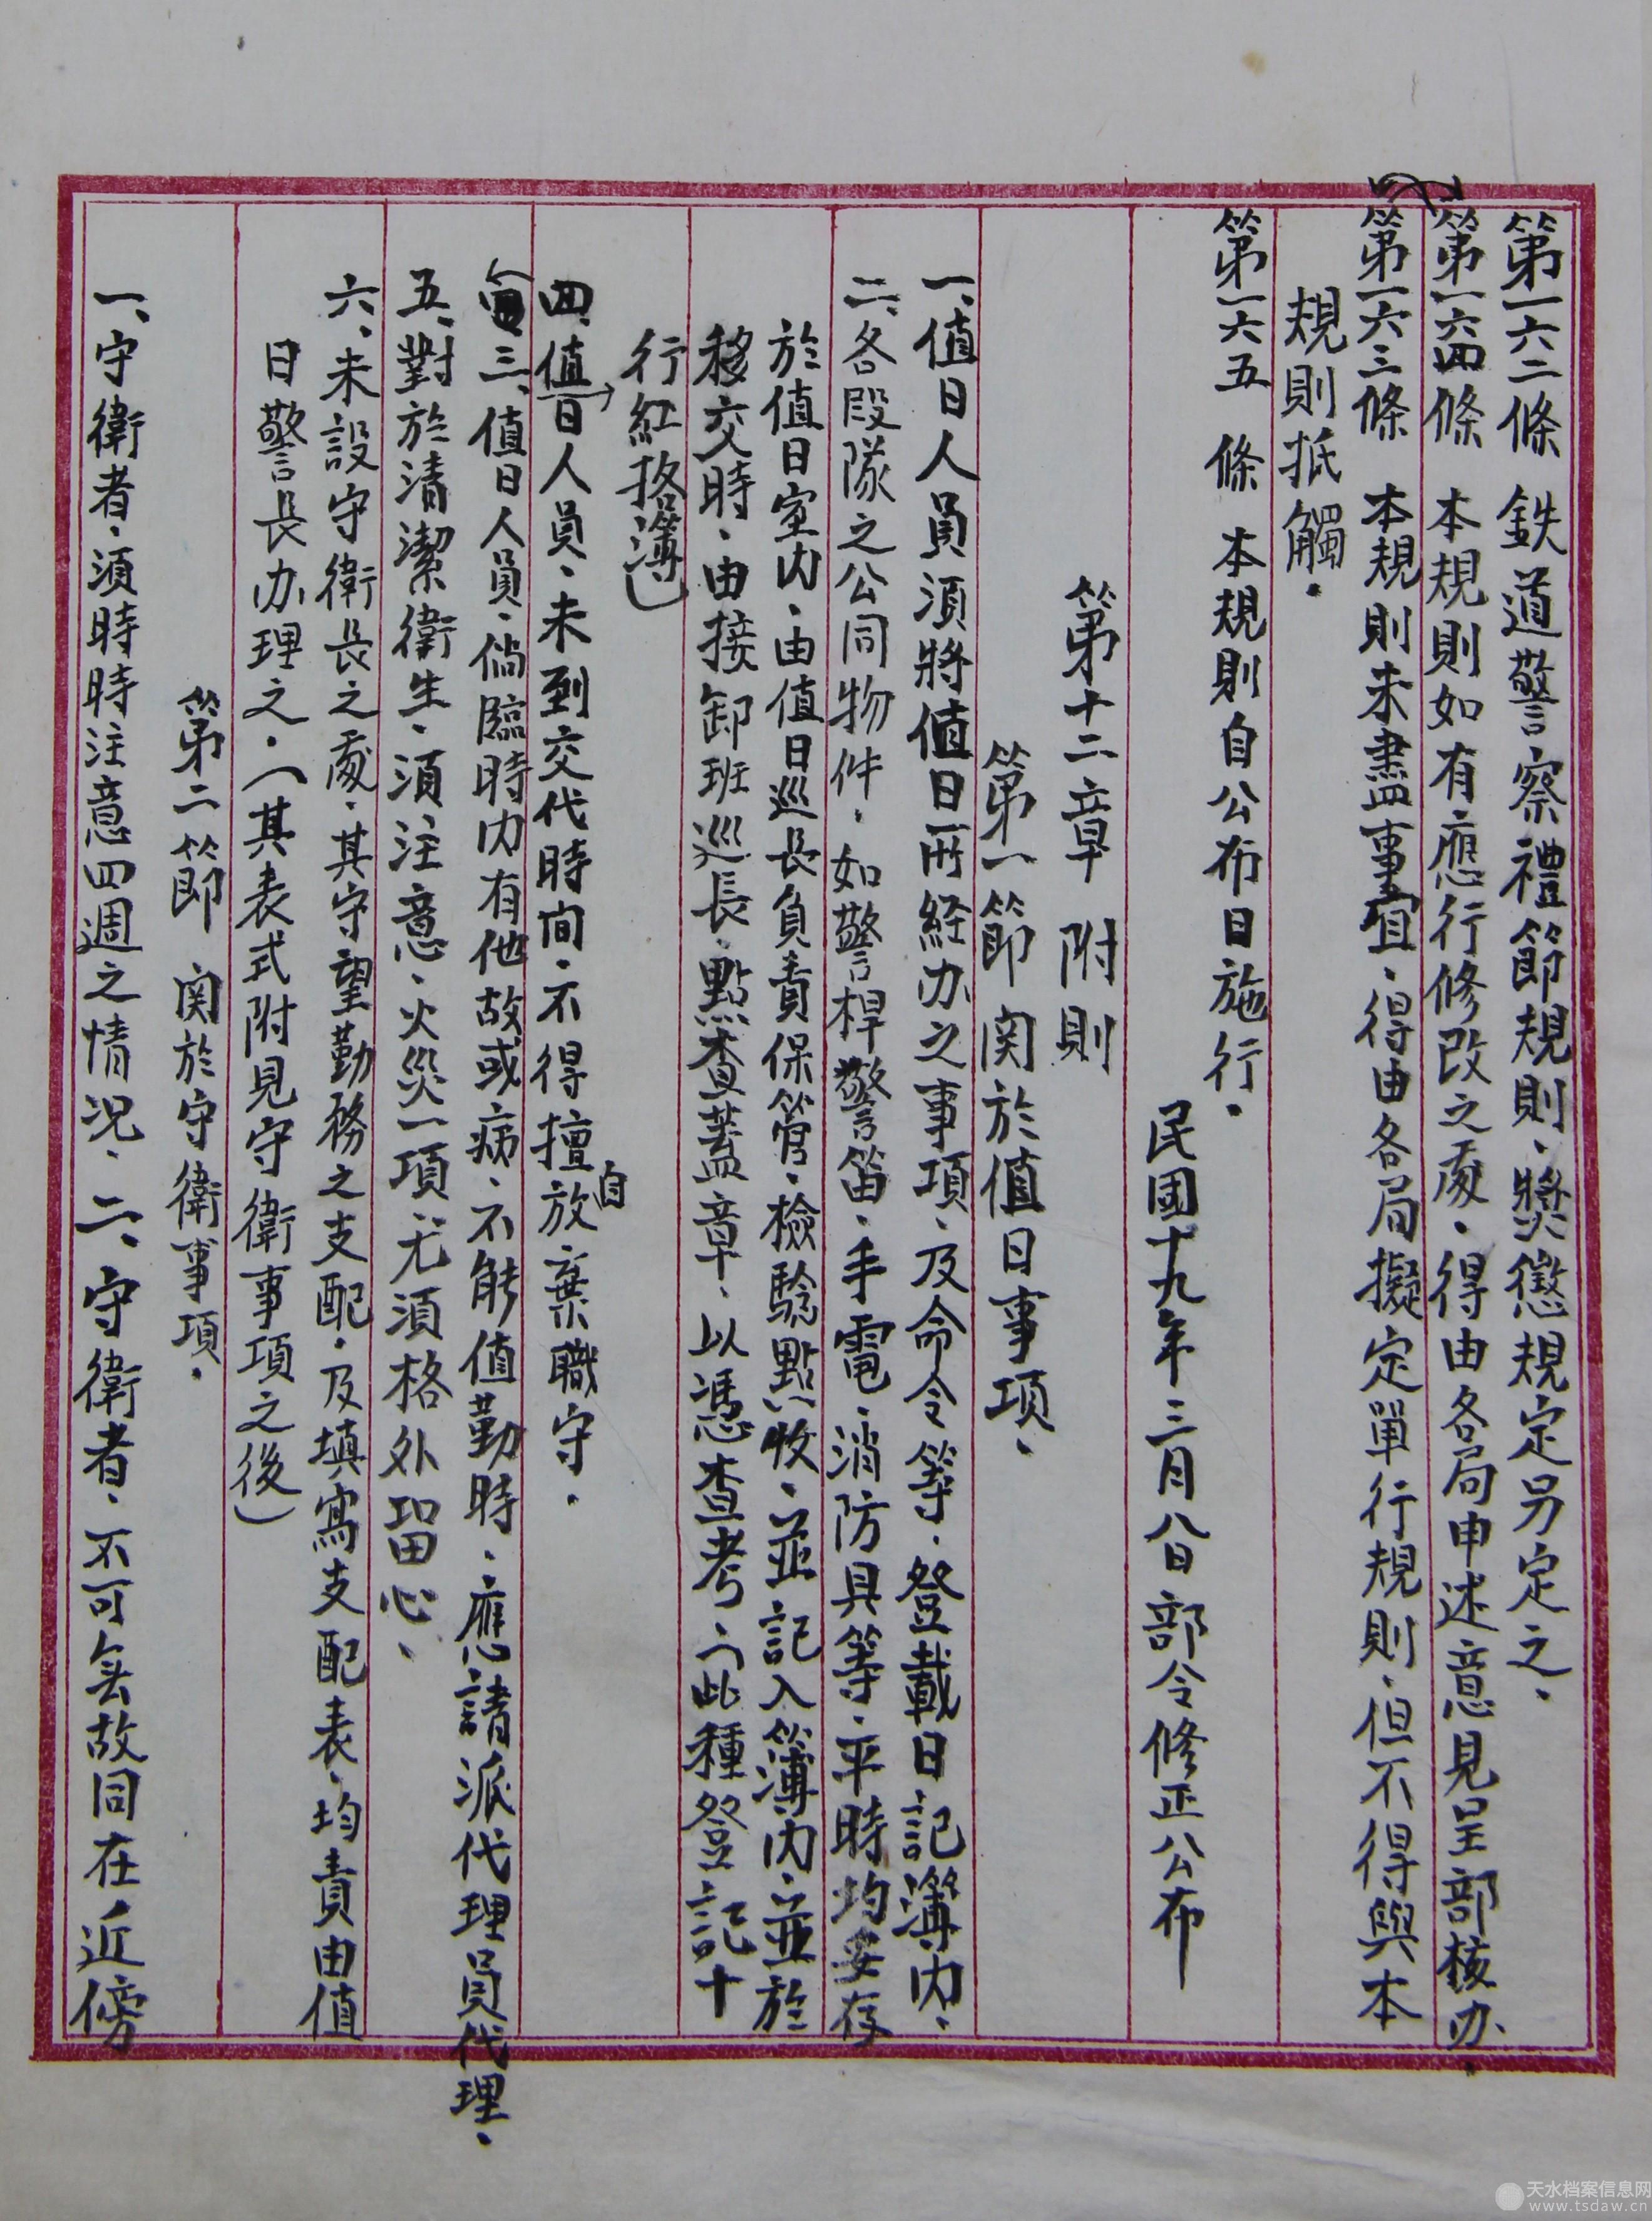 第一六二條　鉄道警察禮節規則、獎懲規定另定之、
第一六四條　本規則如有應行修改之處、得由各局申述意見呈部核办、
第一六三條　本規則未盡事宜、得由各局擬定單行規則、但不得與本
規則抵觸、
第一六五　條　本規則自公布日施行、
民國十九年三月八日部令修正公布
第十二章　附則
第一節　関於值日事項、
一、值日人員須將值日所経办之事項、及命令等、登載日記簿内、
二、各段隊之公同物件、如警桿警笛、手電、消防具等、平時均妥存
於值日室内、由值日巡長負責保管、檢驗點收、並記入簿内、並於
移交時、由接卸班巡長、點查蓋章、以憑查考、（此種登記十
行紅格簿）
四、值日人員、未到交代時间、不得擅自放棄職守、
三、值日人員、倘臨時内有他故或病、不能值勤時、應請派代理員代理、
五、對於清潔衛生、須注意、火災一項、尤須格外留心、
六、未設守衛長之處、其守望勤務之支配、及填寫支配表、均責由值
日警長办理之、（其表式附見守衛事項之後）
第二節　関於守衛事項、
一、守衛者、須時時注意四週之情况、二、守衛者、不可無故同在近傍
天水档案信息网
www.tsdaw.cn